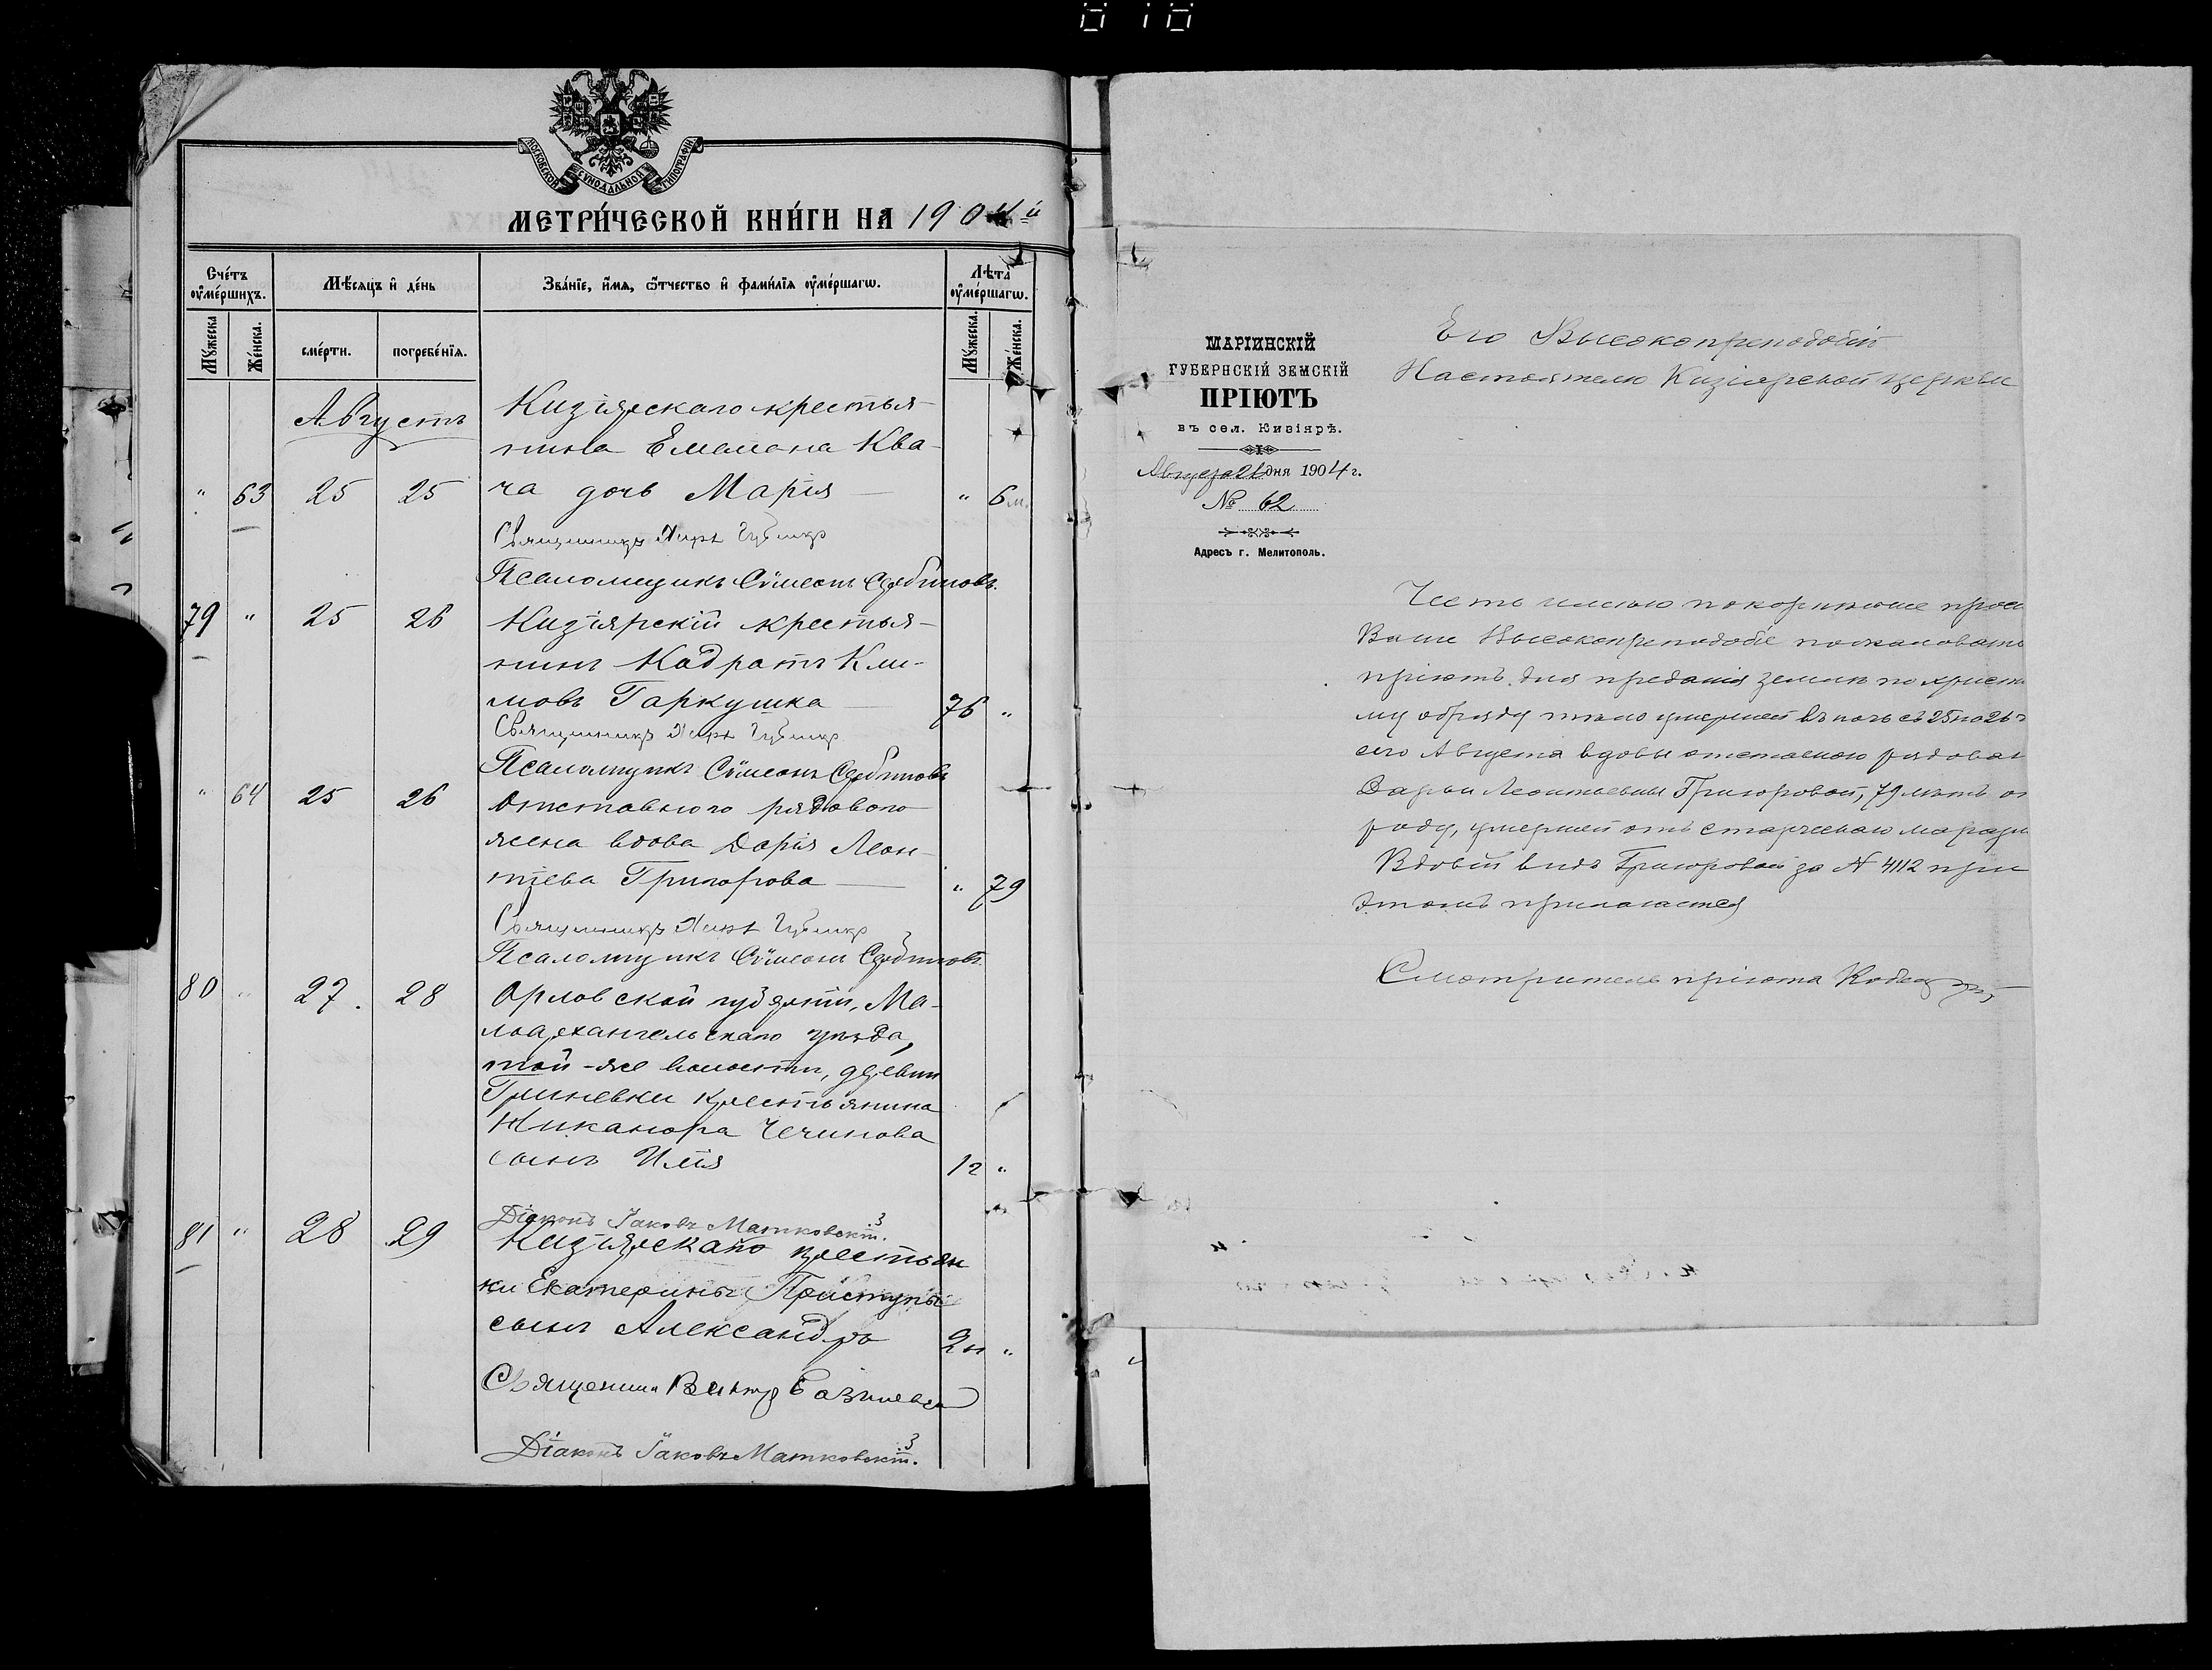 МОСКОВСКОЙ СѴНОДАЛЬНОЙ ТИПОГРАФІИ
МЕТРИ́ЧЕСКОЙ КНИ́ГИ НА 1904й
Сче́тъ оу҆ме́ршихъ.
Мѣ́сяцъ и҆ де́нь
Зва́нїе, и҆́мя, ѻ҆́тчество и҆ фами́лїя оу҆ме́ршагѡ.
Лѣ́та оу҆ме́ршагѡ.
Мꙋ́жеска
Же́нска.
сме́рти.
погребе́нїя.
Мꙋ́жеска.
Же́нска.
Августъ
Кизіярскаго крестья-
нина Емельяна Ква-
" 63 25 25 ча дочь Марія — " 6 м.
Священникъ
Псаломщикъ Сѵмеонъ
79 " 25 26 Кизіярскій крестья-
нинъ Кодратъ Кли-
мовъ Гаркушка — 76 "
Священникъ
Псаломщикъ Сѵмеонъ
" 64 25 26 Отставного рядового
жена вдова Дарія Леон-
тіева Григорова — " 79
Священникъ
Псаломщикъ Сѵмеонъ
80 " 27. 28 Орловской губерніи, Ма-
лоархангельскаго уѣзда,
той-же волости, деревни
Гриневки крестьянина
Никанора Чечинова
сынъ Илія 12 "
Діаконъ Іаковъ Матковскій.
81 " 28 29 Кизіярскаго крестьян
ки Екатерины Приступы
сынъ Александръ 2н "
Священникъ Викторъ
Діаконъ Іаковъ Матковскій.
МАРІИНСКІЙ
ГУБЕРНСКІЙ ЗЕМСКІЙ
ПРІЮТЪ
въ сел. Кизіярѣ.
Августа 26 дня 1904 г.
№ 62
Адресъ г. Мелитополь.
Его Высокопреподобію
Настоятелю Кизіярской церкви
Честь имѣю покорнѣйше прос
Ваше Высокопреподобіе пожаловать
пріютъ для преданія землѣ по христі
му обряду тѣло умершей въ ночь съ 25 по 26 ч
сего Августа вдовы отставного рядова
Дарьи Леонтьевны Григоровой, 79 лѣтъ от
роду, умершей отъ старческаго маразм
Вдовій видъ Григоровой за № 4112 при
этомъ прилагается
Смотритель пріюта